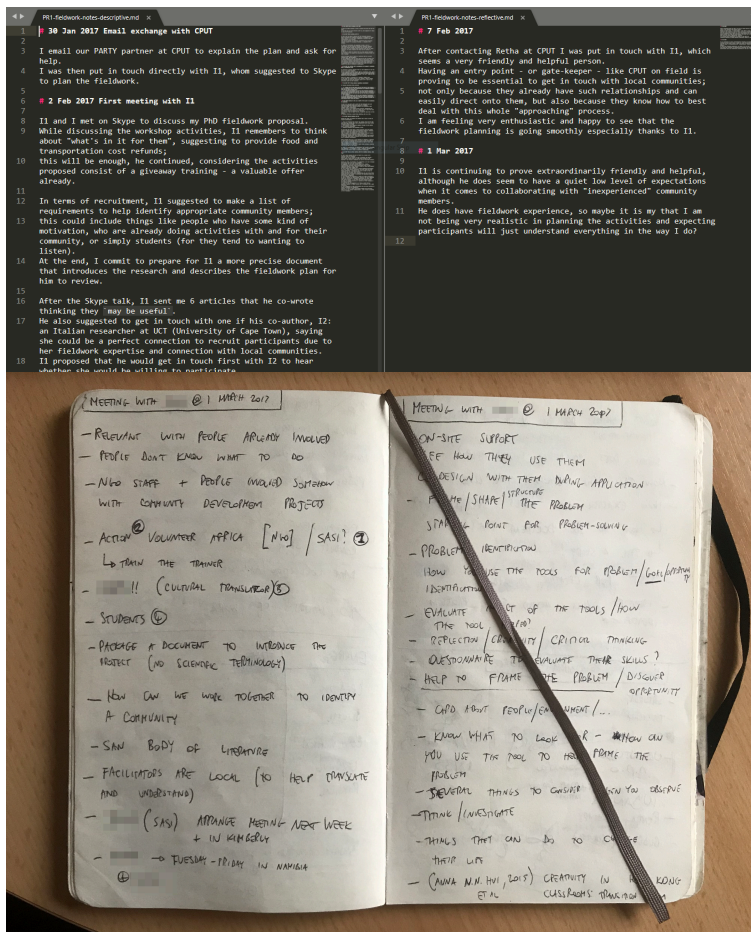 PR1-fieldwork-notes-descriptive.md
# 30 Jan 2017 Email exchange with CPUT
I email our PARTY partner at CPUT to explain the plan and ask for
help.
I was then put in touch directly with I1, whom suggested to Skype
to plan the fieldwork.
# 2 Feb 2017 First meeting with I1
I1 and I met on Skype to discuss my PhD fieldwork proposal.
While discussing the workshop activities, I1 remembers to think
about "what's in it for them", suggesting to provide food and
transportation cost refunds;
this will be enough, he continued, considering the activities
proposed consist of a giveaway training - a valuable offer
already.
In terms of recruitment, I1 suggested to make a list of
requirements to help identify appropriate community members;
this could include things like people who have some kind of
motivation, who are already doing activities with and for their
community, or simply students (for they tend to wanting to
listen).
At the end, I commit to prepare for I1 a more precise document
that introduces the research and describes the fieldwork plan for
him to review.
After the Skype talk, I1 sent me 6 articles that he co-wrote
thinking they `may be useful`.
He also suggested to get in touch with one if his co-author, I2:
an Italian researcher at UCT (University of Cape Town), saying
she could be a perfect connection to recruit participants due to
her fieldwork expertise and connection with local communities.
I1 proposed that he would get in touch first with I2 to hear
whether she would be willing to participate
PR1-fieldwork-notes-reflective.md
# 7 Feb 2017
After contacting Retha at CPUT I was put in touch with I1, which
seems a very friendly and helpful person.
Having an entry point - or gate-keeper - like CPUT on field is
proving to be essential to get in touch with local communities;
not only because they already have such relationships and can
easily direct onto them, but also because they know how to best
deal with this whole "approaching" process.
I am feeling very enthusiastic and happy to see that the
fieldwork planning is going smoothly especially thanks to I1.
# 1 Mar 2017
I1 is continuing to prove extraordinarily friendly and helpful,
although he does seem to have a quiet low level of expectations
when it comes to collaborating with "inexperienced" community
members.
He does have fieldwork experience, so maybe it is my that I am
not being very realistic in planning the activities and expecting
participants will just understand everything in the way I do?
MEETING WITH @ 1 MARCH 2017
- RELEVANT WITH PEOPLE ARLEADY INVOLVED
- PEOPLE DON'T KNOW WHAT TO DO
- NGO STAFF + PEOPLE INVOLVED SOMEHOW
WITH COMMUNITY DEVELOPMENT PROJECTS
- ACTION ② VOLUNTEER AFRICA [NGO] / SASI? ①
↳ TRAIN THE TRAINER
- !! (CULTURAL TRANSLATOR) ③
- STUDENTS ④
- PACKAGE A DOCUMENT TO INTRODUCE THE
PROJECT (NO SCIENTIFIC TERMINOLOGY)
- HOW CAN WE WORK TOGETHER TO IDENTIFY
A COMMUNITY
- SAN BODY OF LITERATURE
- FACILITATORS ARE LOCAL (TO HELP TRANSLATE
AND UNDERSTAND)
- (SASI) ARRANGE MEETING NEXT WEEK
+ IN KIMBERLY
- → TUESDAY-FRIDAY IN NAMIBIA
MEETING WITH @ 1 MARCH 2017
ON-SITE SUPPORT
SEE HOW THEY USE THEM
DESIGN WITH THEM DURING APPLICATION
- FRAME/SHAPE/STRUCTURE THE PROBLEM
STARTING POINT FOR PROBLEM-SOLVING
- PROBLEM IDENTIFICATION
HOW YOU USE THE TOOLS FOR PROBLEM/GOAL/OPPORTUNITY
IDENTIFICATION
- EVALUATE OF THE TOOLS/HOW
THE TOOL
- REFLECTION/CREATIVITY/CRITICAL THINKING
- QUESTIONNAIRE TO EVALUATE THEIR SKILLS?
- HELP TO FRAME THE PROBLEM/DISCOVER
OPPORTUNITY
- CARD ABOUT PEOPLE/ENVIRONMENT/...
- KNOW WHAT TO LOOK FOR - HOW CAN
YOU USE THE TOOL TO HELP FRAME THE
PROBLEM
- SEVERAL THINGS TO CONSIDER WHEN YOU OBSERVE
- THINK/INVESTIGATE
- THINGS THEY CAN DO TO CHANGE
THEIR LIFE
- (ANNA N.N. HUI, 2015) CREATIVITY IN HONG KONG
ET AL CLASSROOMS: TRANSITION